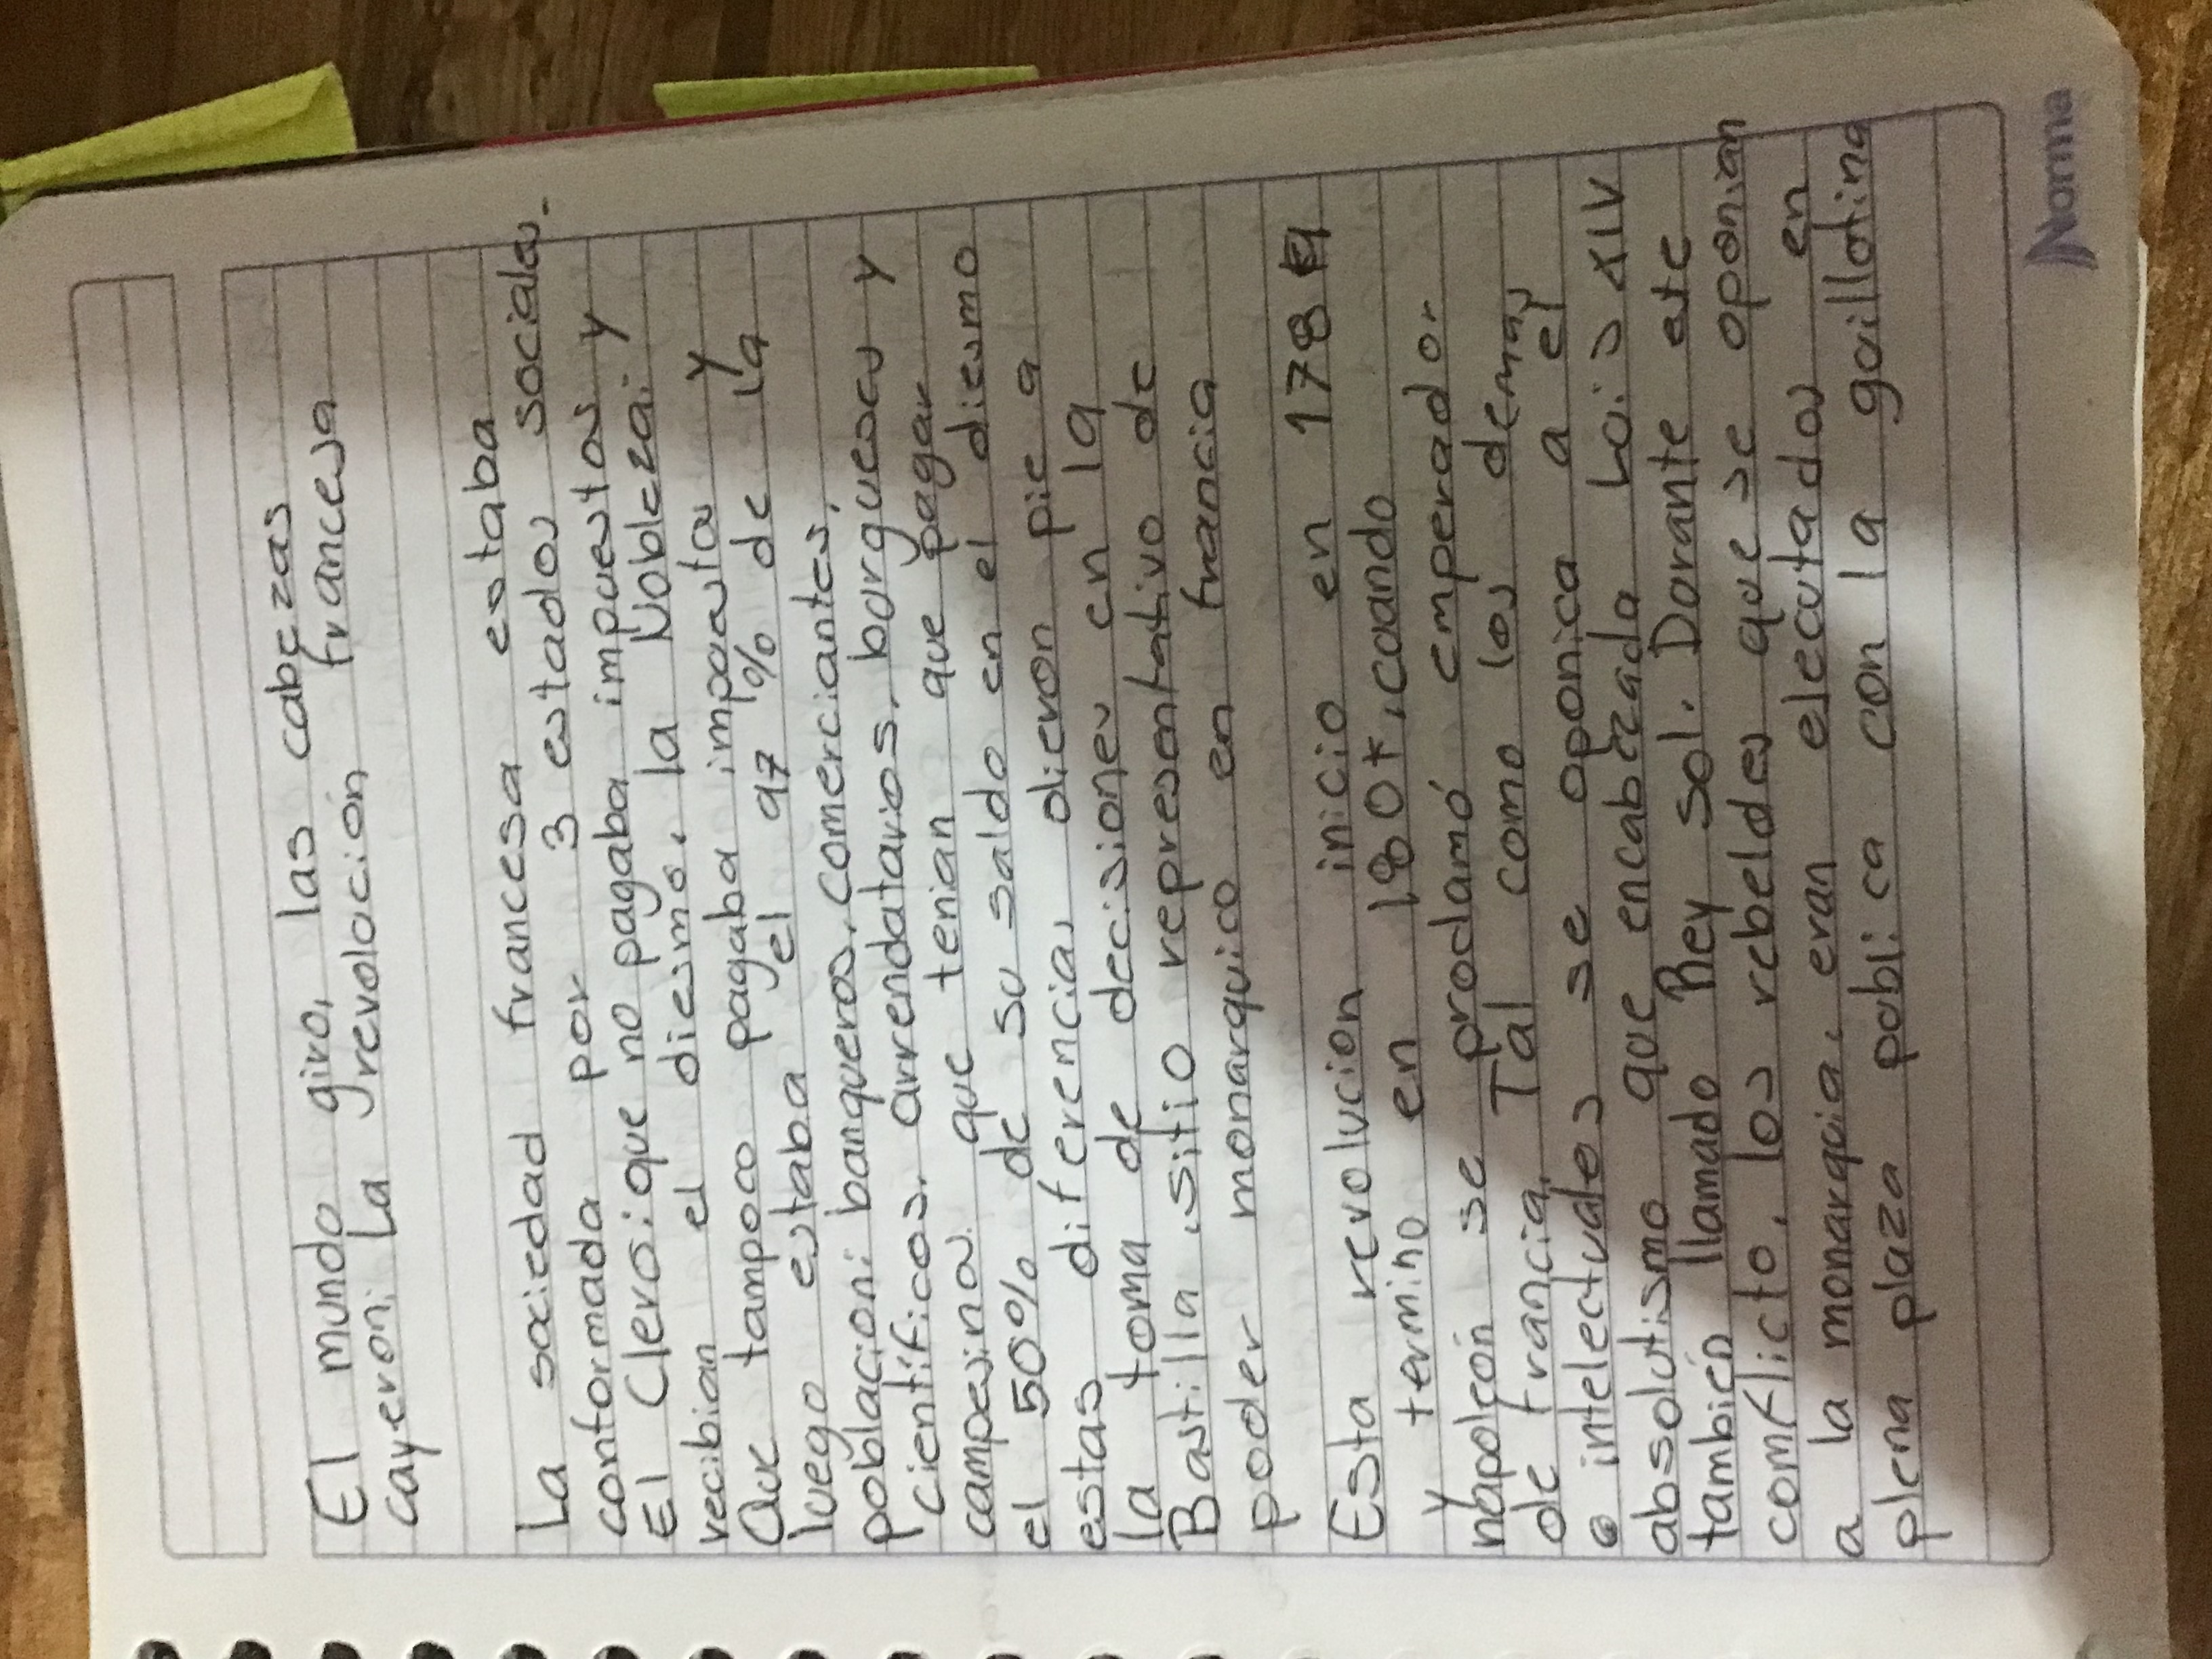 El mundo giro, las cabezas
cayeron: La revolución francesa
La sociedad francesa estaba
conformada por 3 estados sociales.
El Clero: que no pagaba impuestos y
recibian el diesmo, la Nobleza: y
Que tampoco pagaba impuestos y
luego estaba el 97% de la
poblacion: banqueros, comerciantes,
cientificos, arrendatarios, burgueses y
campesinos que tenian que pagar
el 50% de su saldo en el diesmo
estas diferencias dieron pie a
la toma de decisiones en la
Bastilla, sitio representativo de
poder monarquico en francia
Esta revolucion inicio en 1789
y termino en 180+, cuando
napoleón se proclamó emperador
de francia. Tal como los demas
e intelectuales se oponica a el
absolutismo que encabezada Luis XIV
también llamado Rey sol. Durante este
comflicto, los rebeldes que se oponian
a la monarquia, eran elecutados en
plena plaza publica con la guillotina
Norma